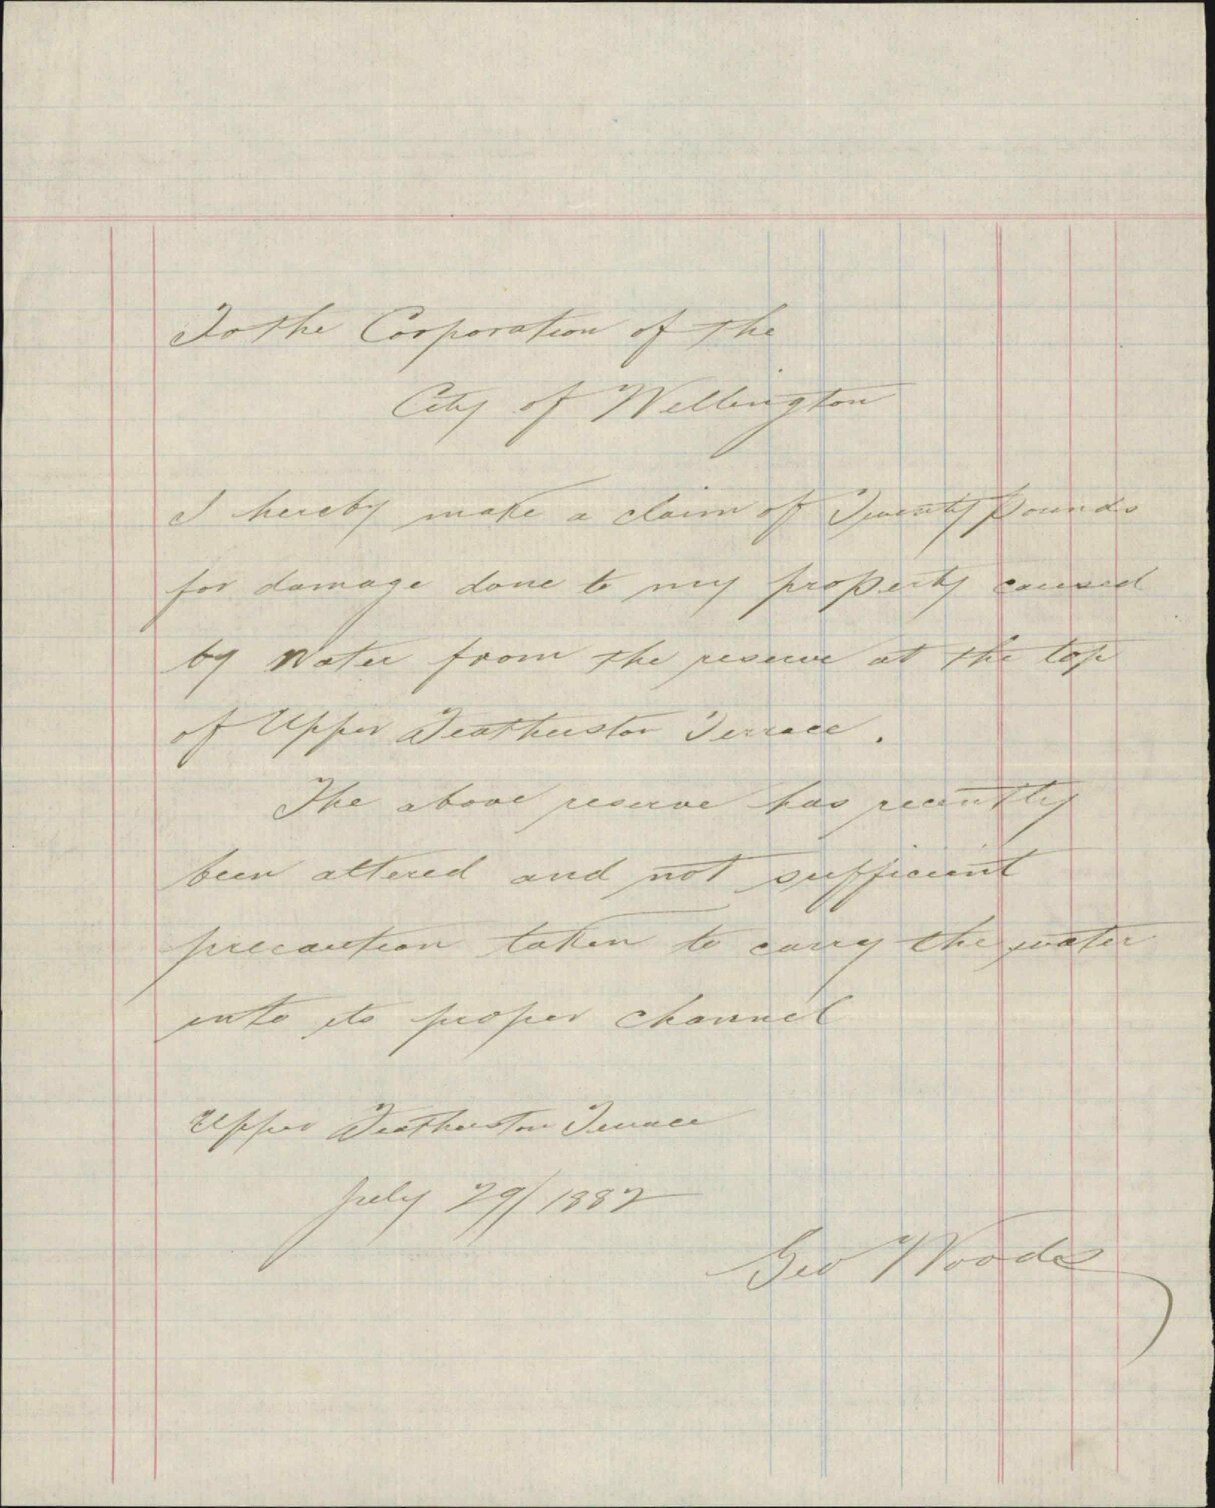 To the Corporation of the
City of Wellington
I hereby make a claim of Twenty Pounds
for damage done to my property caused
by Water from the reserve at the top
of Upper Featherston Terrace.
The above reserve has recently
been altered and not sufficient
precaution taken to carry the water
into its proper channel
Upper Featherston Terrace
July 29/1882
Geo Woods